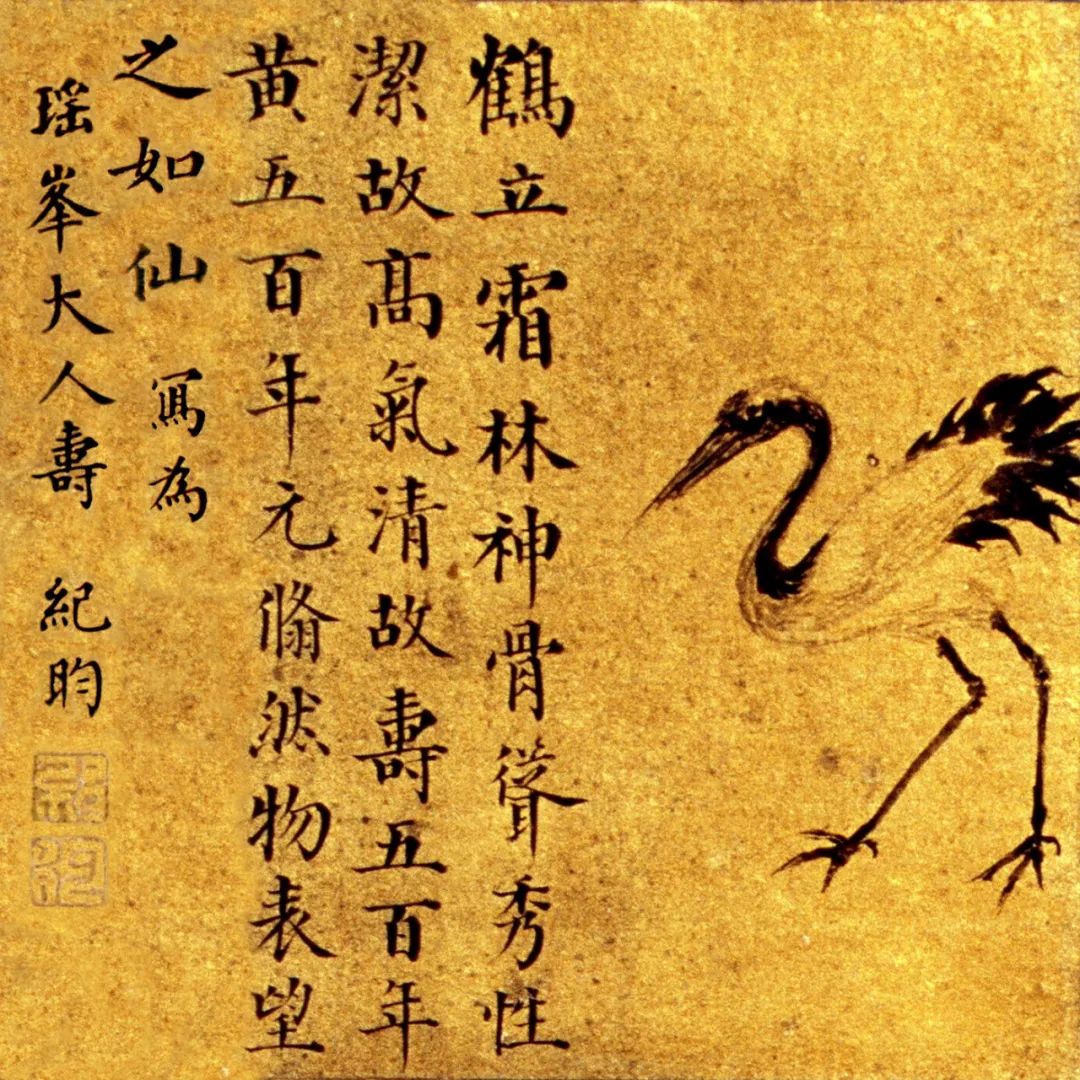 鶴立霜林神骨聳秀性
潔故髙氣清故壽五百年
黄五百年元翛然物表望
之如仙 冩為
瑶峯大人壽 紀昀